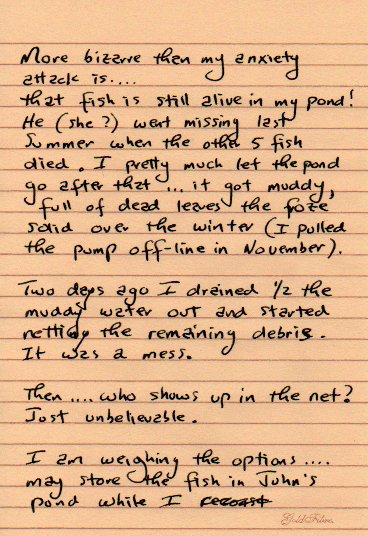 More bizarre than my anxiety
attack is....
that fish is still alive in my pond!
He (she?) went missing last
Summer when the other 5 fish
died. I pretty much let the pond
go after that ... it got muddy,
full of dead leaves the froze
solid over the winter (I pulled
the pump off-line in November).
Two days ago I drained 1/2 the
muddy water out and started
netting the remaining debris.
It was a mess.
Then .... who shows up in the net?
Just unbelievable.
I am weighing the options ....
may store the fish in John's
pond while I
Gold Fibre